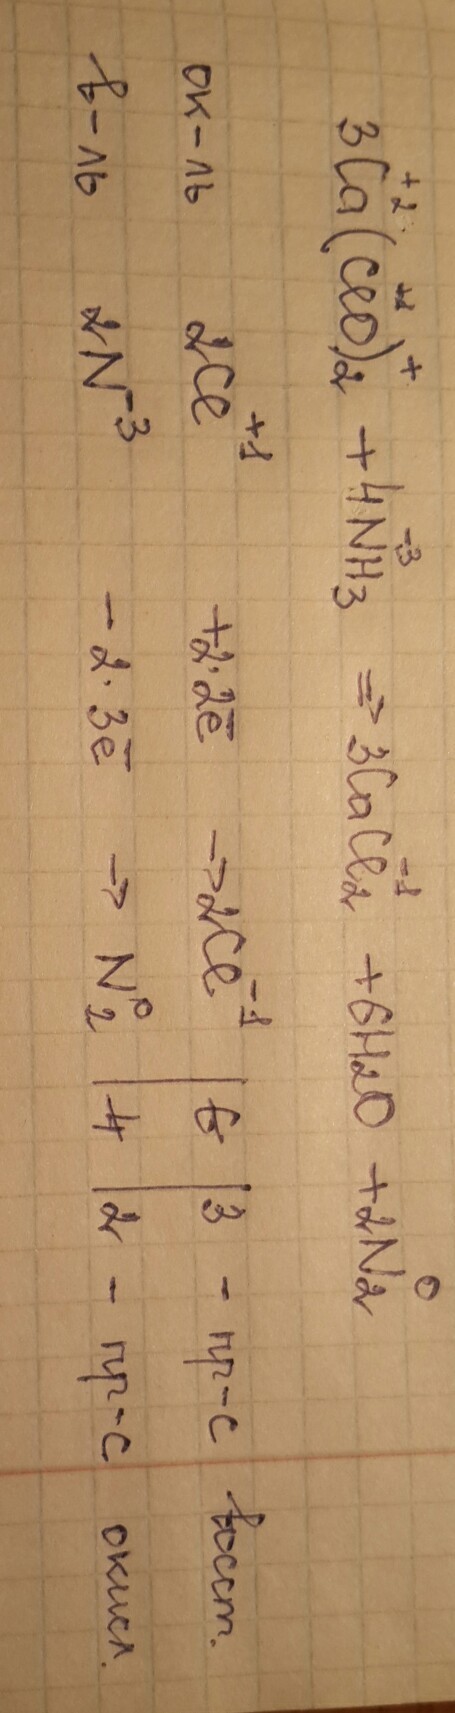 3Ca⁺²(Cl⁺¹O)₂⁺ + 4N⁻³H₃ => 3CaCl₂⁻¹ + 6H2O + 2N₂⁰
ок-ль 2Cl⁺¹ +2·2ē → 2Cl⁻¹ | 6 | 3 - пр-с восст.
в-ль 2N⁻³ - 2·3ē → N₂⁰ | 4 | 2 - пр-с окисл.